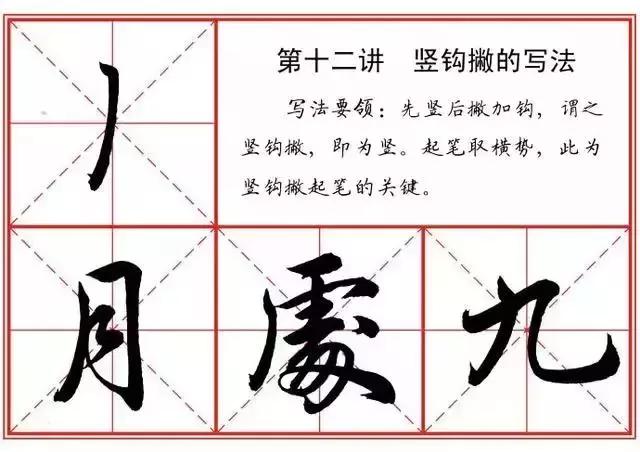 第十二讲　竖钩撇的写法
写法要领：先竖后撇加钩，谓之
竖钩撇，即为竖。起笔取横势，此为
竖钩撇起笔的关键。
月 處 九